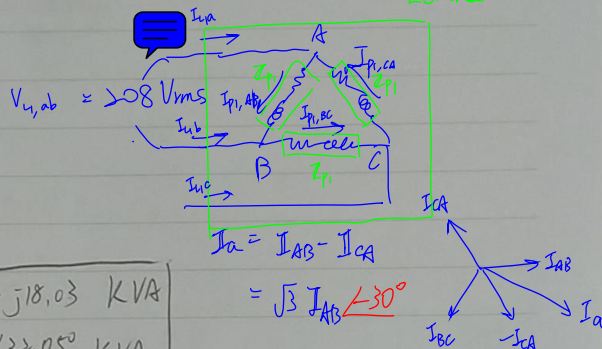 I_u,a
A
I_p1,CA
Z_p1
Z_p1
V_u,ab = 208 Vrms
I_p1,AB
I_p1,BC
I_u,b
B
C
Z_p1
I_u,c
I_a = I_AB - I_CA
= √3 I_AB ∠-30°
I_CA
I_AB
I_a
I_BC
-I_CA
j18,03 KVA
KVA